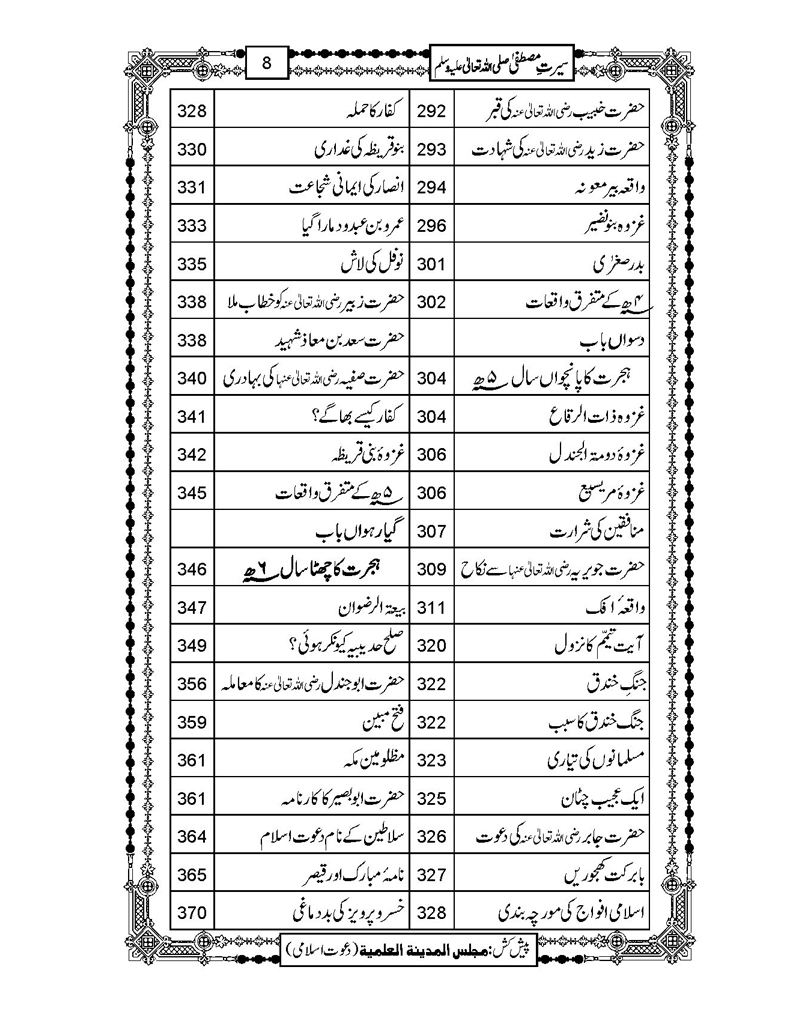 سیرتِ مصطفیٰ صلی اللہ تعالیٰ علیہ وسلم 8
حضرت خبیب رضی اللہ تعالیٰ عنہ کی قبر 292
حضرت زید رضی اللہ تعالیٰ عنہ کی شہادت 293
واقعہ بیر معونہ 294
غزوہ بنو نضیر 296
بدر صغرٰی 301
۴ھ کے متفرق واقعات 302
دسواں باب
ہجرت کا پانچواں سال ۵ھ 304
غزوہ ذات الرقاع 304
غزوۂ دومۃ الجندل 306
غزوۂ مریسیع 306
منافقین کی شرارت 307
حضرت جویریہ رضی اللہ تعالیٰ عنہا سے نکاح 309
واقعۂ افک 311
آیت تیمّم کا نزول 320
جنگِ خندق 322
جنگ خندق کا سبب 322
مسلمانوں کی تیاری 323
ایک عجیب چٹان 325
حضرت جابر رضی اللہ تعالیٰ عنہ کی دعوت 326
بابرکت کھجوریں 327
اسلامی افواج کی مورچہ بندی 328
کفار کا حملہ 328
بنو قریظہ کی غداری 330
انصار کی ایمانی شجاعت 331
عمرو بن عبدود مارا گیا 333
نوفل کی لاش 335
حضرت زبیر رضی اللہ تعالیٰ عنہ کو خطاب ملا 338
حضرت سعد بن معاذ شہید 338
حضرت صفیہ رضی اللہ تعالیٰ عنہا کی بہادری 340
کفار کیسے بھاگے؟ 341
غزوۂ بنی قریظہ 342
۵ھ کے متفرق واقعات 345
گیارہواں باب
ہجرت کا چھٹا سال ۶ھ 346
بیعۃ الرضوان 347
صلح حدیبیہ کیونکر ہوئی؟ 349
حضرت ابو جندل رضی اللہ تعالیٰ عنہ کا معاملہ 356
فتح مبین 359
مظلومین مکہ 361
حضرت ابو بصیر کا کارنامہ 361
سلاطین کے نام دعوت اسلام 364
نامۂ مبارک اور قیصر 365
خسرو پرویز کی بددماغی 370
پیش کش: مجلس المدینۃ العلمیۃ (دعوت اسلامی)